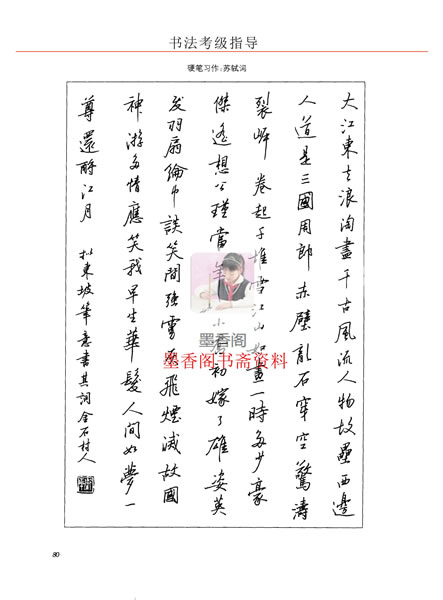 书法考级指导
硬笔习作:苏轼词
大江東去浪淘盡千古風流人物故壘西邊
人道是三國周郎赤壁亂石穿空驚濤
裂岸卷起千堆雪江山如畫一時多少豪
傑遙想公瑾當年小喬初嫁了雄姿英
发羽扇綸巾談笑間强虜灰飛煙滅故國
神游多情應笑我早生華髮人間如夢一
尊還酹江月
拟東坡筆意書其詞金石村人
墨香阁
墨香阁书斋资料
80